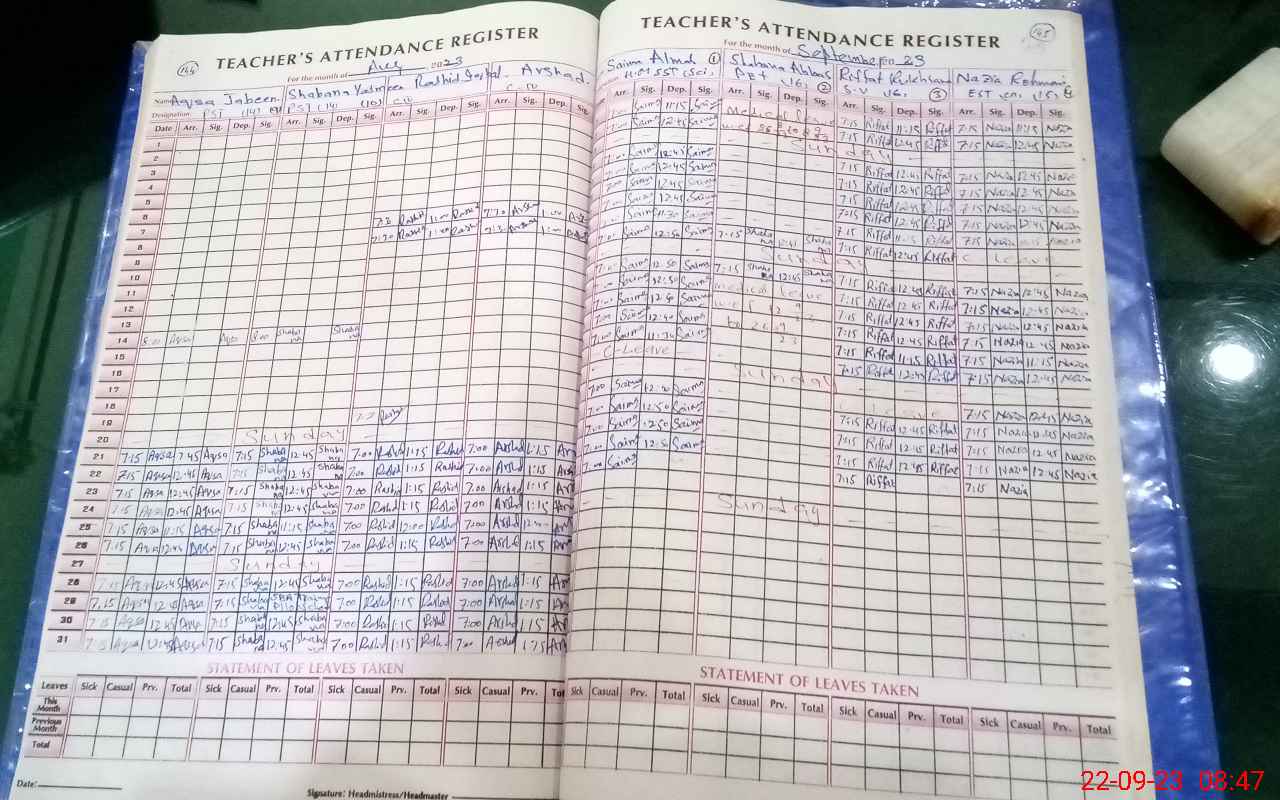 144
TEACHER'S ATTENDANCE REGISTER
For the month of Aug 2023
Name Aqsa Jabeen Shabana Yasmeen Rashid Iqbal Arshad
Designation PST (14) PST (14) C.IV C.IV
Date Arr. Sig. Dep. Sig. Arr. Sig. Dep. Sig. Arr. Sig. Dep. Sig. Arr. Sig. Dep.
1
2
3
4
5
6
7
8
9
10
11
12
13
14 8:00 Aqsa Aqsa 8:00 Shabana Shabana
15
16
17
18
19
20 Sunday
21 7:15 Aqsa Aqsa 7:15 Shabana 12:45 Shabana 7:00 Rashid 1:15 Rashid 7:00 Arshd 1:15
22 7:15 Aqsa 12:45 Aqsa 7:15 Shabana 12:45 Shabana 7:00 Rashid 1:15 Rashid 7:00 Arshd 1:15
23 7:15 Aqsa 12:45 Aqsa 7:15 Shabana 12:45 Shabana 7:00 Rashid 1:15 Rashid 7:00 Arshd 1:15
24 7:15 Aqsa 12:45 Aqsa 7:15 Shabana 12:45 Shabana 7:00 Rashid 1:15 Rashid 7:00 Arshd 1:15
25 7:15 Aqsa 11:15 Aqsa 7:15 Shabana 11:15 Shabana 7:00 Rashid 12:00 Rashid 7:00 Arshd 12:00
26 7:15 Aqsa 12:45 Aqsa 7:15 Shabana 12:45 Shabana 7:00 Rashid 1:15 Rashid 7:00 Arshd 1:15
27 Sunday
28 7:15 Aqsa 12:45 Aqsa 7:15 Shabana 12:45 Shabana 7:00 Rashid 1:15 Rashid 7:00 Arshd 1:15
29 7:15 Aqsa 12:45 Aqsa 7:15 Shabana 7:00 Rashid 1:15 Rashid 7:00 Arshd 1:15
30 7:15 Aqsa 12:45 Aqsa 7:15 Shabana 12:45 Shabana 7:00 Rashid 1:15 Rashid 7:00 Arshd 1:15
31 7:15 Aqsa 12:45 Aqsa 7:15 Shabana 12:45 Shabana 7:00 Rashid 1:15 Rashid 7:00 Arshd 1:15
STATEMENT OF LEAVES TAKEN
Leaves Sick Casual Prv. Total Sick Casual Prv. Total Sick Casual Prv. Total Sick Casual Prv.
This Month
Previous Month
Total
Date:
Signature: Headmistress/Headmaster
145
TEACHER'S ATTENDANCE REGISTER
For the month of September 2023
Saima Ahmad 1 Shabana Abbas Riffat Rukhsana Nazia Rehman
SST (Sci) PET 16 2 S.V 16 3 EST 15 4
Arr. Sig. Dep. Sig. Arr. Sig. Dep. Sig. Arr. Sig. Dep. Sig. Arr. Sig. Dep. Sig.
Saima 11:15 Saima Medical leave 7:15 Riffat 11:15 Riffat 7:15 Nazia 11:15 Nazia
7:00 Saima 12:45 Saima 7:15 Riffat 12:45 Riffat 7:15 Nazia 12:45 Nazia
Sunday
7:00 Saima 12:45 Saima 7:15 Riffat 12:45 Riffat 7:15 Nazia 12:45 Nazia
7:00 Saima 12:45 Saima 7:15 Riffat 12:45 Riffat 7:15 Nazia 12:45 Nazia
7:00 Saima 12:45 Saima 7:15 Riffat 12:45 Riffat 7:15 Nazia 12:45 Nazia
Saima 12:45 Saima 7:15 Riffat 12:45 Riffat 7:15 Nazia 12:45 Nazia
Saima 11:30 Saima 7:15 Riffat 11:15 Riffat 7:15 Nazia Nazia
7:00 Saima 12:50 Saima 7:15 Shabana Shabana 7:15 Riffat 12:45 Riffat C Leave
Sunday
7:00 Saima 12:50 Saima 7:15 Shabana 12:45 Shabana 7:15 Riffat 12:45 Riffat 7:15 Nazia 12:45 Nazia
7:00 Saima 12:50 Saima medical leave 7:15 Riffat 12:45 Riffat 7:15 Nazia 12:45 Nazia
7:00 Saima Saima w.e.f 7:15 Riffat 12:45 Riffat 7:15 Nazia 12:45 Nazia
7:00 Saima Saima to 7:15 Riffat 12:45 Riffat 7:15 Nazia 12:45 Nazia
7:00 Saima 11:30 Saima 7:15 Riffat 11:15 Riffat 7:15 Nazia 11:15 Nazia
C-Leave 7:15 Riffat 12:45 Riffat 7:15 Nazia 12:45 Nazia
Sunday
7:00 Saima Saima Leave 7:15 Nazia 12:45 Nazia
7:00 Saima 12:50 Saima 7:15 Riffat 12:45 Riffat 7:15 Nazia 12:45 Nazia
7:00 Saima 12:50 Saima 7:15 Riffat 12:45 Riffat 7:15 Nazia 12:45 Nazia
7:00 Saima 12:50 Saima 7:15 Riffat 12:45 Riffat 7:15 Nazia 12:45 Nazia
7:00 Saima 7:15 Riffat 7:15 Nazia
Sunday
STATEMENT OF LEAVES TAKEN
Sick Casual Prv. Total Sick Casual Prv. Total Sick Casual Prv. Total Sick Casual Prv. Total
22-09-23 08:47